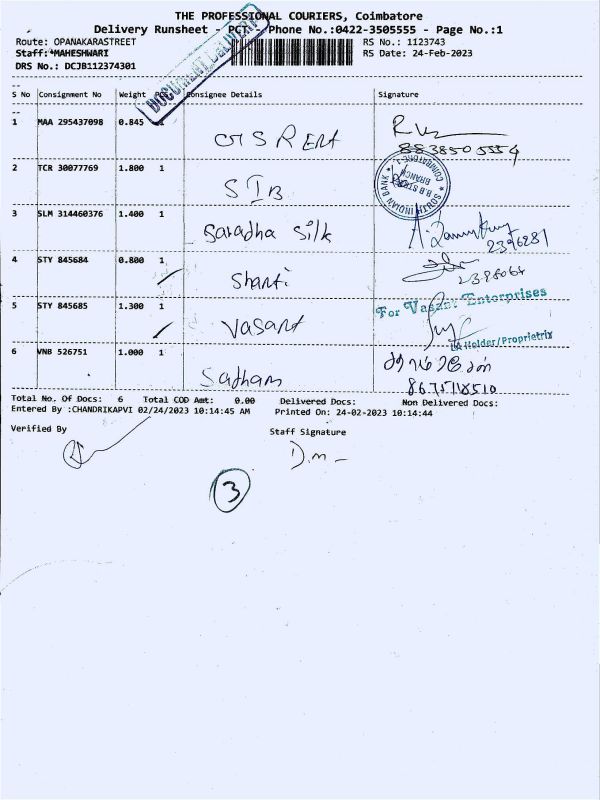 THE PROFESSIONAL COURIERS, Coimbatore
Delivery Runsheet - PCT - Phone No.:0422-3505555 - Page No.:1
Route: OPANAKARASTREET RS No.: 1123743
Staff: *MAHESHWARI RS Date: 24-Feb-2023
DRS No.: DCJB112374301
DOCUMENT DELIVERY
S No Consignment No Weight PCS Consignee Details Signature
1 MAA 295437098 0.845 1
8838505554
2 TCR 30077769 1.800 1 SIB
SOUTH INDIAN BANK
COIMBATORE
BRANCH
3 SLM 314460376 1.400 1 Saradha Silk
2396281
4 STY 845684 0.800 1 Shanti
5 STY 845685 1.300 1 Vasant For Vasant Enterprises
Holder/Proprietrix
6 VNB 526751 1.000 1 Satham
Total No. Of Docs: 6 Total COD Amt: 0.00 Delivered Docs: Non Delivered Docs:
Entered By :CHANDRIKAPVI 02/24/2023 10:14:45 AM Printed On: 24-02-2023 10:14:44
Verified By Staff Signature
D.m-
3